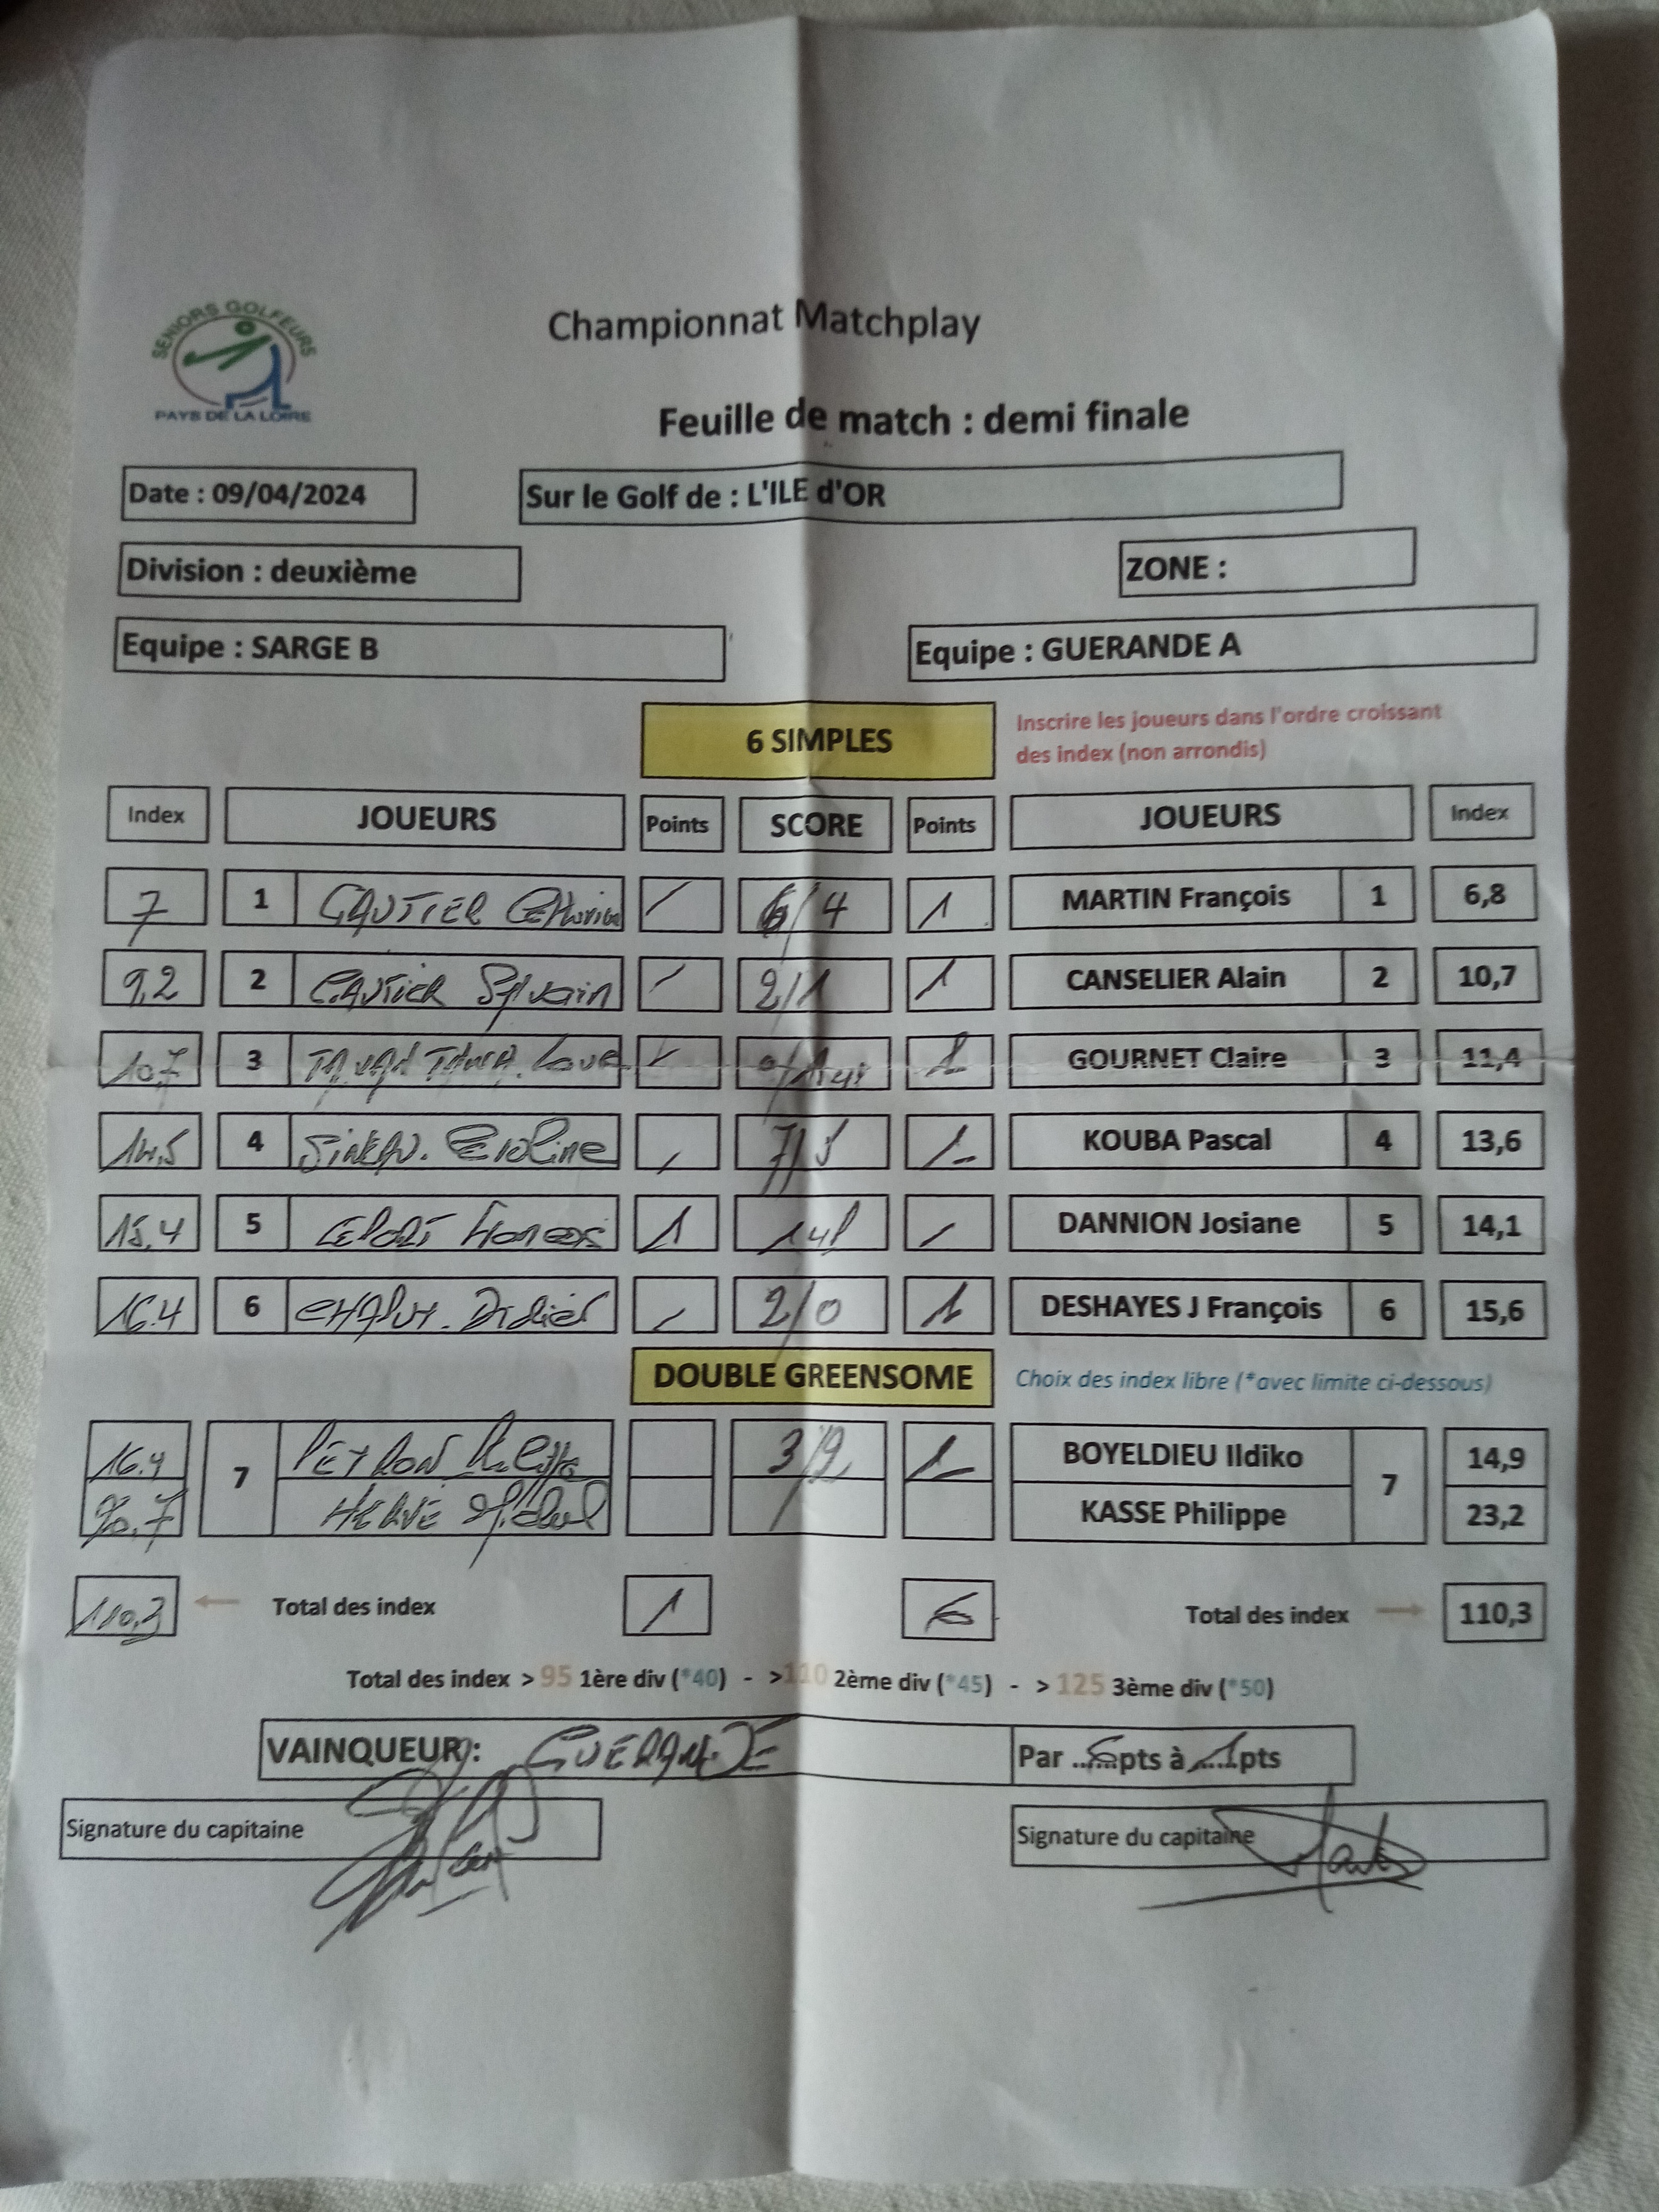 SENIORS GOLFEURS
PAYS DE LA LOIRE
Championnat Matchplay
Feuille de match : demi finale
Date : 09/04/2024 Sur le Golf de : L'ILE d'OR
Division : deuxième ZONE :
Equipe : SARGE B Equipe : GUERANDE A
6 SIMPLES
Inscrire les joueurs dans l'ordre croissant
des index (non arrondis)
Index JOUEURS Points SCORE Points JOUEURS Index
7 1 GAUTIER / 6/4 1 MARTIN François 1 6,8
9,2 2 GAUTIER Sylvain / 2/1 1 CANSELIER Alain 2 10,7
10,7 3 1 GOURNET Claire 3 11,4
14,5 4 Caroline 1 KOUBA Pascal 4 13,6
15,4 5 1 1up DANNION Josiane 5 14,1
16.4 6 Didier 2/0 1 DESHAYES J François 6 15,6
DOUBLE GREENSOME Choix des index libre (*avec limite ci-dessous)
16.4 7 3/2 1 BOYELDIEU Ildiko 7 14,9
20,7 HERVE Michel KASSE Philippe 23,2
110,3 ← Total des index 1 6 Total des index → 110,3
Total des index > 95 1ère div (*40) - >110 2ème div (*45) - > 125 3ème div (*50)
VAINQUEUR: GUERANDE Par ..6..pts à ..1..pts
Signature du capitaine Signature du capitaine